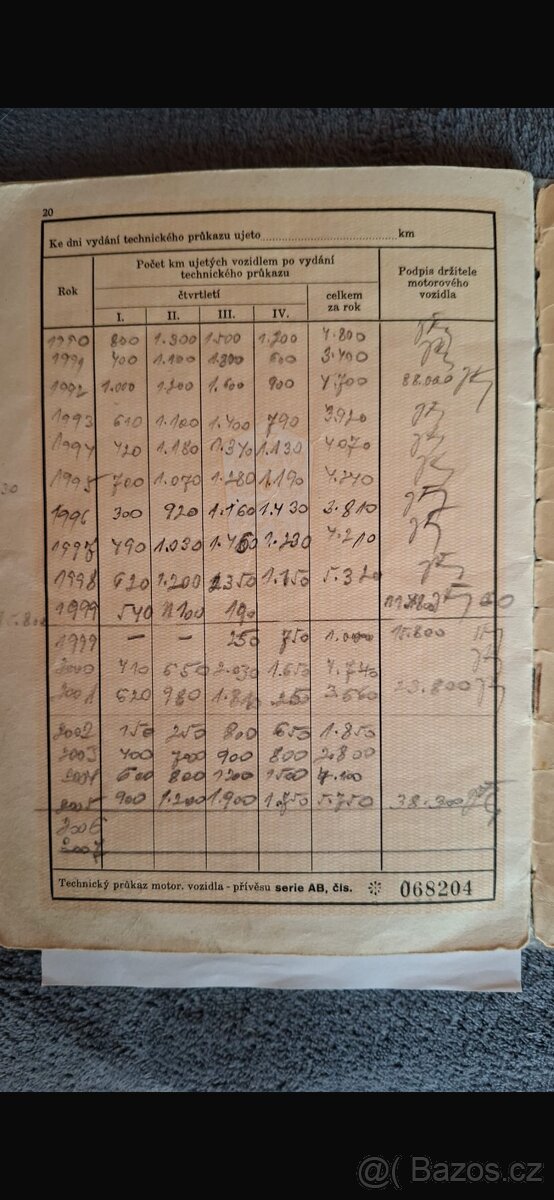 20
Ke dni vydání technického průkazu ujeto km
Rok
Počet km ujetých vozidlem po vydání
technického průkazu
Podpis držitele
motorového
vozidla
čtvrtletí
celkem
za rok
I. II. III. IV.
1990 800 1.300 1.500 1.200 4.800
1991 400 1.100 1.300 600 3.400
1992 1.000 1.200 1.600 900 4.700 88.000
1993 610 1.100 1.400 790 3920
1994 420 1.180 1.340 1.130 4.070
1995 700 1.070 1.280 1.190 4.240
1996 300 920 1.160 1.430 3.810
1997 490 1.030 1.460 1.230 4.210
1998 620 1.200 2350 1.150 5.320
1999 540 1100 190
1999 – – 250 750 1.000 15.800
2000 410 650 2.030 1.650 4.740
2001 620 980 1.810 250 3.660 23.800
2002 150 250 800 650 1.850
2003 400 700 900 800 2.800
2004 600 800 1200 1500 4.100
2005 900 1.200 1.900 1.750 5.750 38.300
2006
2007
Technický průkaz motor. vozidla - přívěsu serie AB, čís. 068204
@( Bazos.cz